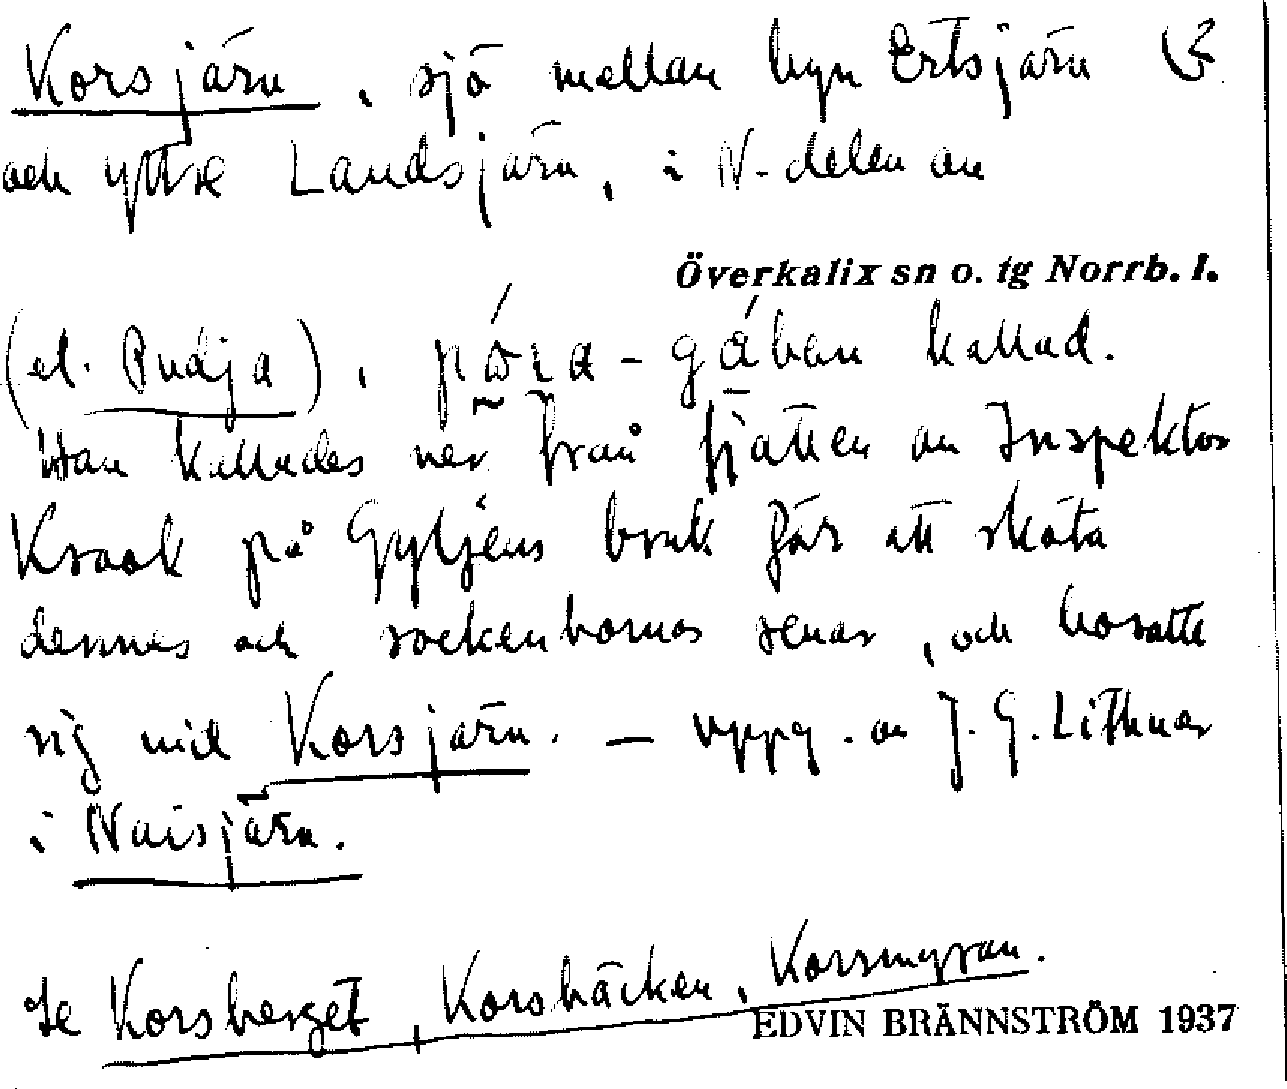 Korsjärn, sjö mellan byn Ertsjärn
och yttre Landsjärn, i N-delen av
Överkalix sn o. tg Norrb. l.
(el. Pudja), kallad.
Han kallades ner från fjällen av Inspektor
Kraok på Gyljens bruk för att sköta
dennes och sockenbornas renar, och bosatte
sig vid Korsjärn. — uppg. av J. G. Lithner
i Naisjärn.
Se Korsberget, Korsbäcken, Korsmyran.
EDVIN BRÄNNSTRÖM 1937